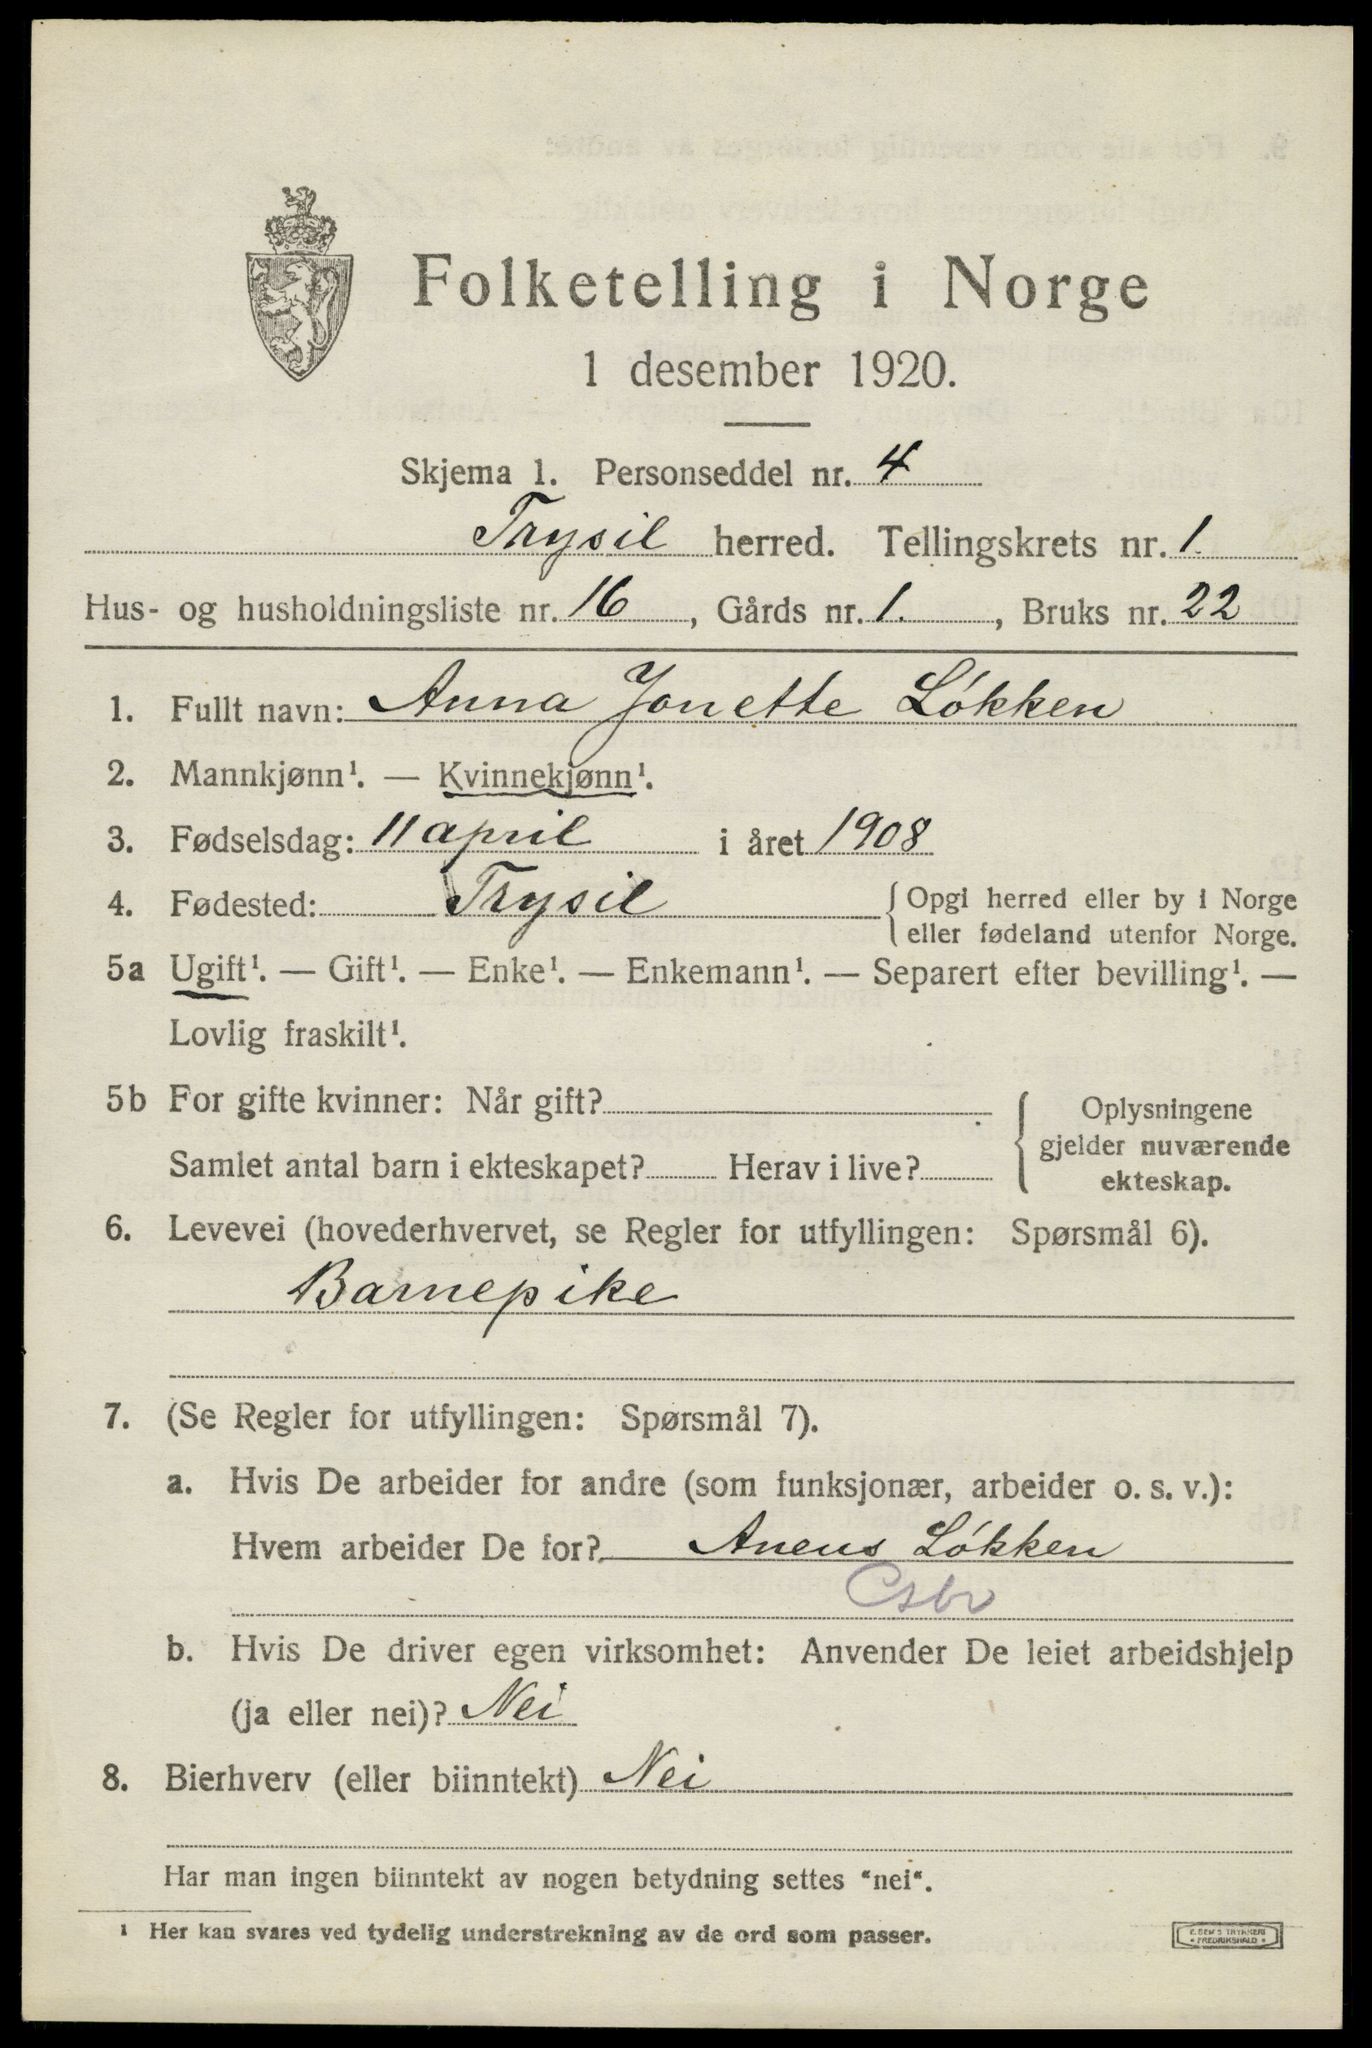 Folketelling i Norge
1 desember 1920.
Skjema 1. Personseddel nr. 4
Trysil herred. Tellingskrets nr. 1.
Hus- og husholdningsliste nr. 16, Gårds nr. 1., Bruks nr. 22
1. Fullt navn: Anna Jonette Løkken
2. Mannkjønn¹. — Kvinnekjønn¹.
3. Fødselsdag: 11 april i året 1908
4. Fødested: Trysil { Opgi herred eller by i Norge
eller fødeland utenfor Norge.
5a Ugift¹. — Gift¹. — Enke¹. — Enkemann¹. — Separert efter bevilling¹. —
Lovlig fraskilt¹.
5b For gifte kvinner: Når gift?
Samlet antal barn i ekteskapet? Herav i live?
Oplysningene
gjelder nuværende
ekteskap.
6. Levevei (hovederhvervet, se Regler for utfyllingen: Spørsmål 6).
Barnepike
7. (Se Regler for utfyllingen: Spørsmål 7).
a. Hvis De arbeider for andre (som funksjonær, arbeider o. s. v.):
Hvem arbeider De for? Anens Løkken
b. Hvis De driver egen virksomhet: Anvender De leiet arbeidshjelp
(ja eller nei)? Nei
8. Bierhverv (eller biinntekt) Nei
Har man ingen biinntekt av nogen betydning settes "nei".
¹ Her kan svares ved tydelig understrekning av de ord som passer.
E. SEM'S TRYKKERI
FREDRIKSHALD